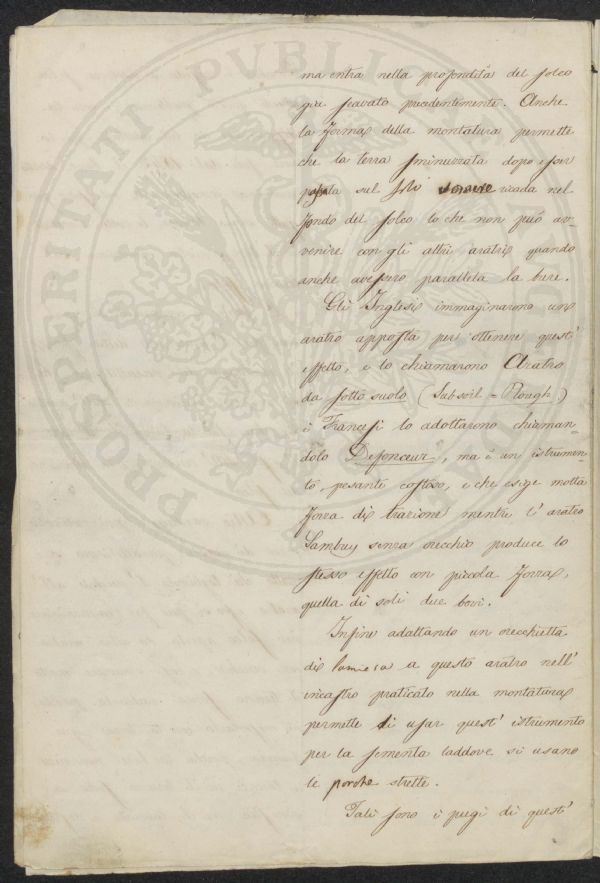 ma entra nella profondità del solco
già scavato precedentemente. Anche
la forma della montatura permette
che la terra sminuzzata dopo esser
passata sul vomere ricada nel
fondo del solco lo che non può av-
venire con gli altri aratri quando
anche avessero paralleta la bure.
Gli Inglesi immaginarono un
aratro apposta per ottenere quest'
effetto, e lo chiamarono Aratro
da sotto suolo (Subsoil = Plough)
i Francesi lo adottarono chiaman-
dolo Defonceur, ma è un istrumen-
to, pesante costoso, e che esige molta
forza di trazione mentre l'aratro
Sambuy senza orecchio produce lo
stesso effetto con piccola forza,
quella di soli due bovi.
Infine adattando un orecchietta
di lamiera a questo aratro nell'
incastro praticato nella montatura
permette di usar quest' istrumento
per la sementa laddove si usano
le porche strette.
Tali sono i pregi di quest'
PROSPERITATI PUBLICAE